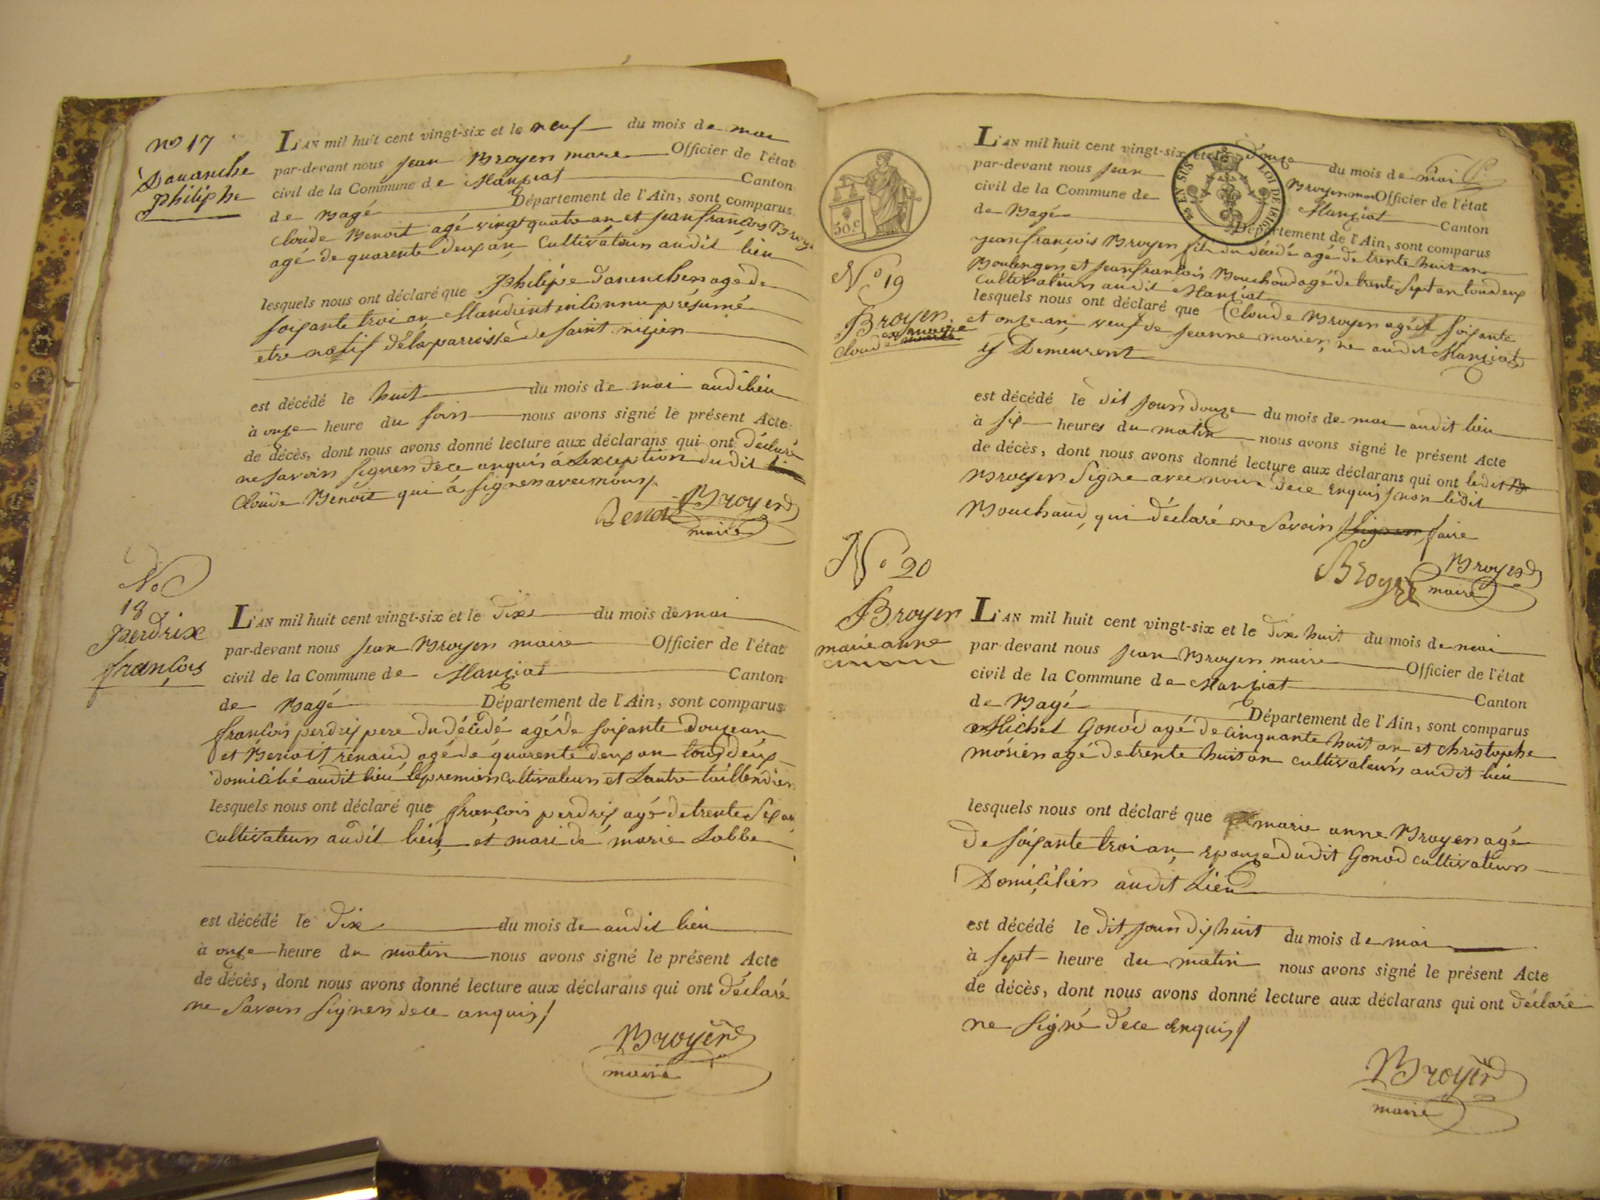 no 17
Davanche
philiphe
L'AN mil huit cent vingt-six et le neuf du mois de mai
par-devant nous jean Broyer maire Officier de l'état
civil de la Commune de Manziat Canton
de Bagé Département de l'Ain, sont comparus
Cloude Benoit agé vingt quatre an et jean françois Broye
agé de quarente deux an cultivateur audit lieu
lesquels nous ont déclaré que philipe davenche agé de
soixante troi an Mandiant inconnu présumé
etre natif de la paroisse de saint
est décédé le huit du mois de mai audit lieu
à onze heure du soir nous avons signé le présent Acte
de décès, dont nous avons donné lecture aux déclarans qui ont déclaré
ne savoir signer de ce enquis à l'exception dudit
Cloude Benoit qui à signer avec nous
Benoit Broyer
maire
No
18
perdrix
françois
L'AN mil huit cent vingt-six et le dix du mois de mai
par-devant nous jean Broyer maire Officier de l'état
civil de la Commune de Manziat Canton
de Bagé Département de l'Ain, sont comparus
françois perdrix pere du décédé agé de soixante douze an
et Benoit renaud agé de quarente deux an tous deux
domicilié audit lieu le premier cultivateur et l'autre taillendier
lesquels nous ont déclaré que françois perdrix agé de trente six an
cultivateur audit lieu et mari de marie Labbe
est décédé le dix du mois de audit lieu
à onze heure du matin nous avons signé le présent Acte
de décès, dont nous avons donné lecture aux déclarans qui ont déclaré
ne savoir signer de ce enquis
Broyer
maire
50 c
EN SUS
LOI DE 1816
L'AN mil huit cent vingt-six et le douze du mois de mai
par-devant nous jean Broyer maire Officier de l'état
civil de la Commune de Manziat Canton
de Bagé Département de l'Ain, sont comparus
jean françois Broyer fils du décédé agé de trente huit an
Boulenger et jean françois Bouchoud agé de trente sept an tous deux
cultivateur audit Manziat
No 19
Broyer
Cloude
lesquels nous ont déclaré que Cloude Broyer agé de soixante
et onze an, veuf de jeanne morier, né audit Manziat
y Demeurent
est décédé le dit jour douze du mois de mai audit lieu
à six heures du matin nous avons signé le présent Acte
de décès, dont nous avons donné lecture aux déclarans qui ont ledit
Broyer signe avec nous de ce enquis non ledit
Bouchaud qui déclaré ne savoir signer faire
Broyer Broyer
maire
No 20
Broyer
marie anne
L'AN mil huit cent vingt-six et le dix huit du mois de mai
par-devant nous jean Broyer maire Officier de l'état
civil de la Commune de Manziat Canton
de Bagé Département de l'Ain, sont comparus
Michel Gonod agé de cinquante huit an et christophe
morier agé de trente huit an cultivateurs audit lieu
lesquels nous ont déclaré que marie anne Broyer agé
de soixante troi an, epouse dudit Gonod cultivateur
Domicilier audit Lieu
est décédé le dit jour dix huit du mois de mai
à sept heure du matin nous avons signé le présent Acte
de décès, dont nous avons donné lecture aux déclarans qui ont déclaré
ne signé de ce enquis
Broyer
maire